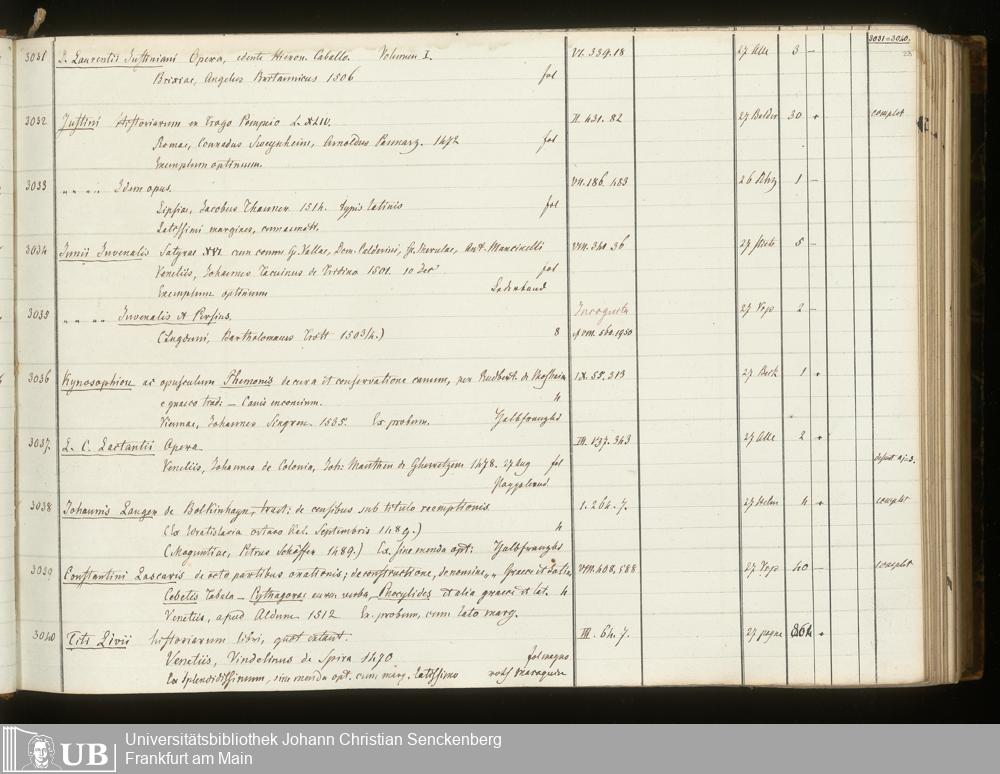 3031=3040.
23
3031 D. Laurentii Justiniani Opera, edente Hieron. Caballo. Volumen I. VI. 339. 18 27 Alle 3 —
Brixiae, Angelus Britannicus 1506 fol
3032 Justini Historiarum ex Trogo Pompeio L. XLIV. II. 431. 82 27 30 + complet
Romae, Conradus Sweynheim, Arnoldus Pannarz. 1472 fol
Exemplum optimum.
3033 " " " " Idem opus. VII. 186. 483 26 1 —
Lipsiae, Jacobus Thanner 1514. typis latinis fol
Latissimi margines,
3034 Junii Juvenalis Satyrae XVI cum comm G. Vallae, Dom. Calderini, G. Merulae, Ant. Mancinelli VIII. 340 36 27 5 —
Venetiis, Johannes Tacuinus de Tridino 1501. 10 Dec fol
Exemplum optimum Lederband
3035 " " " " Juvenalis et Persius. Incognita 27 2 —
(Lugduni, Bartholomaeus Trott 1503/4.) 8 cf VIII. 560. 1950
3036 Kynosophion ac opusculum Phemonis de cura et conservatione canum, per Rudbert. de Mosham IX. 55. 313 27 Beck 1 +
e graeco trad. — Canis encomium. 4
Viennae, Johannes Singren. 1535. Ex probum. Halbfranzbd
3037. L. C. Lactantii Opera. III. 137. 343 27 Alle 2 +
Venetiis, Johannes de Colonia, Joh: Manthen de Gherretzem 1478. 27 Aug fol
Pappband.
3038 Johannis Langer de Bolkinhayn, tract: de censibus sub titulo reemptionis I. 264. 7. 27 4 + complet
(Ex Wratislavia octavo Kal. Septembris 1489.) 4
(Moguntiae, Petrus Schöffer 1489.) Ex. sine menda opt: Halbfranzbd
3039 Constantini Lascaris de octo partibus orationis; de constructione, de nomine " " Graeci et Latin VIII. 408. 588 27 40 — complet
Cebetis Tabula — Pythagorae aurea verba, Phocylides et alia graeci et lat. 4
Venetiis, apud Aldum 1512 Ex. probum, cum lato marg.
3040 Titi Livii historiarum libri, quot extant. III. 64. 7. 27 +
Venetiis, Vindelinus de Spira 1470 fol magno
Ex splendidissimum, sine menda opt. cum marg. latissimo roth Maroquin
UB
Universitätsbibliothek Johann Christian Senckenberg
Frankfurt am Main